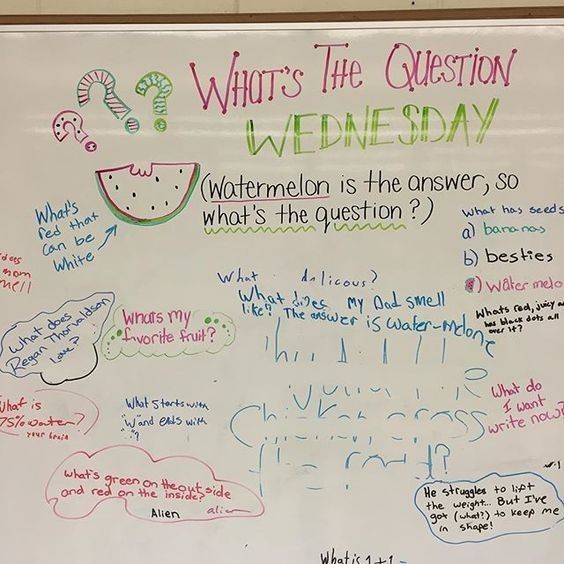 ? ? ?
WHAT'S THE QUESTION
WEDNESDAY
(Watermelon is the answer, so
what's the question?)
What's
red that
can be
white
What has seeds
a) bananas
b) besties
c) watermelo
Whats red, juicy a
has black dots all
over it?
What
delicous?
What does my Dad smell
like? The answer is water-melone
does
mom
mell
What does
Regan Thorvaldson
Love?
Whars my
favorite fruit?
What is
75% water?
your brain
What starts with
"W and ends with
"?
What do
I want
write now?
What's green on the out side
and red on the inside?
Alien
alien
He struggles to lift
the weight... But I've
got (what?) to keep me
in shape!
What is 1+1